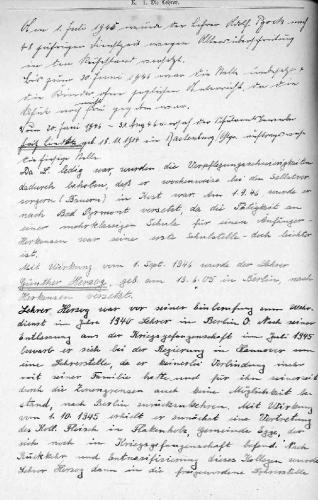 K. 1. Die Lehrer.
Am 1. Juli 1945 wurde der Lehrer Adolf Brock nach
48 jähriger Dienstzeit wegen Altersüberschreitung
in den Ruhestand versetzt.
Bis zum 20. Juni 1946 war die Stelle unbesetzt
die Kinder ohne jeglichen Unterricht, da die
Schule
Vom 20. Juni 1946 - 31. Aug 46
Fritz geb. 18.11.1914 in Rastenburg, Ostpr. 
hiesige Stelle.
Da L. ledig war, wurden die Verpflegungsschwierigkeiten
dadurch behoben, daß er wochenweise bei den Selbstver-
sorgern (Bauern) in Kost war. Am 1.9.46 wurde er
nach Bad Pyrmont versetzt, da die Tätigkeit an
einer mehrklassigen Schule für einen Anfänger -
Herkensen war seine erste Schulstelle - doch leichter
ist.
Mit Wirkung vom 1. Sept. 1946 wurde der Lehrer
Günther Herzog, geb. am 13.6.05 in Berlin, nach
Herkensen versetzt.
Lehrer Herzog war vor seiner Einberufung zum Wehr-
dienst im Jahre 1940 Lehrer in Berlin O. Nach seiner
Entlassung aus der Kriegsgefangenschaft im Juli 1945
bewarb er sich bei der Regierung in Hannover um
eine Lehrerstelle, da er keinerlei Verbindung mehr
mit seiner Familie hatte und für ihn seinerzeit
durch die Zonengrenzen auch keine Möglichkeit be-
stand, nach Berlin zurückzukehren. Mit Wirkung
vom 1.10.1945 erhielt er zunächst eine Vertretung
des Koll. in Flakenholz, Gemeinde Egge, der
sich noch in Kriegsgefangenschaft befand. Nach
Rückkehr und Entnazifizierung dieses Kollegen wurde
Lehrer Herzog dann in die freigewordene Lehrerstelle